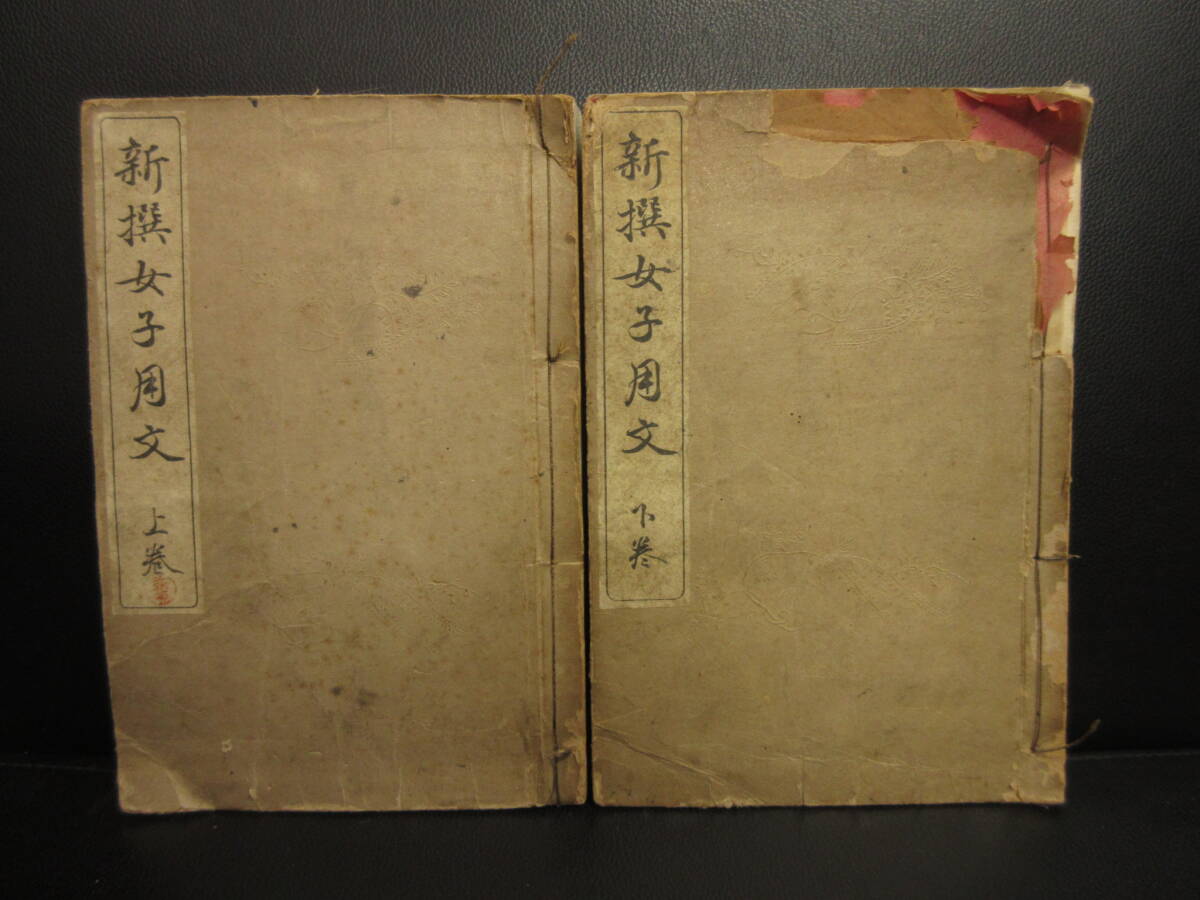 新撰女子用文
上巻
新撰女子用文
下巻